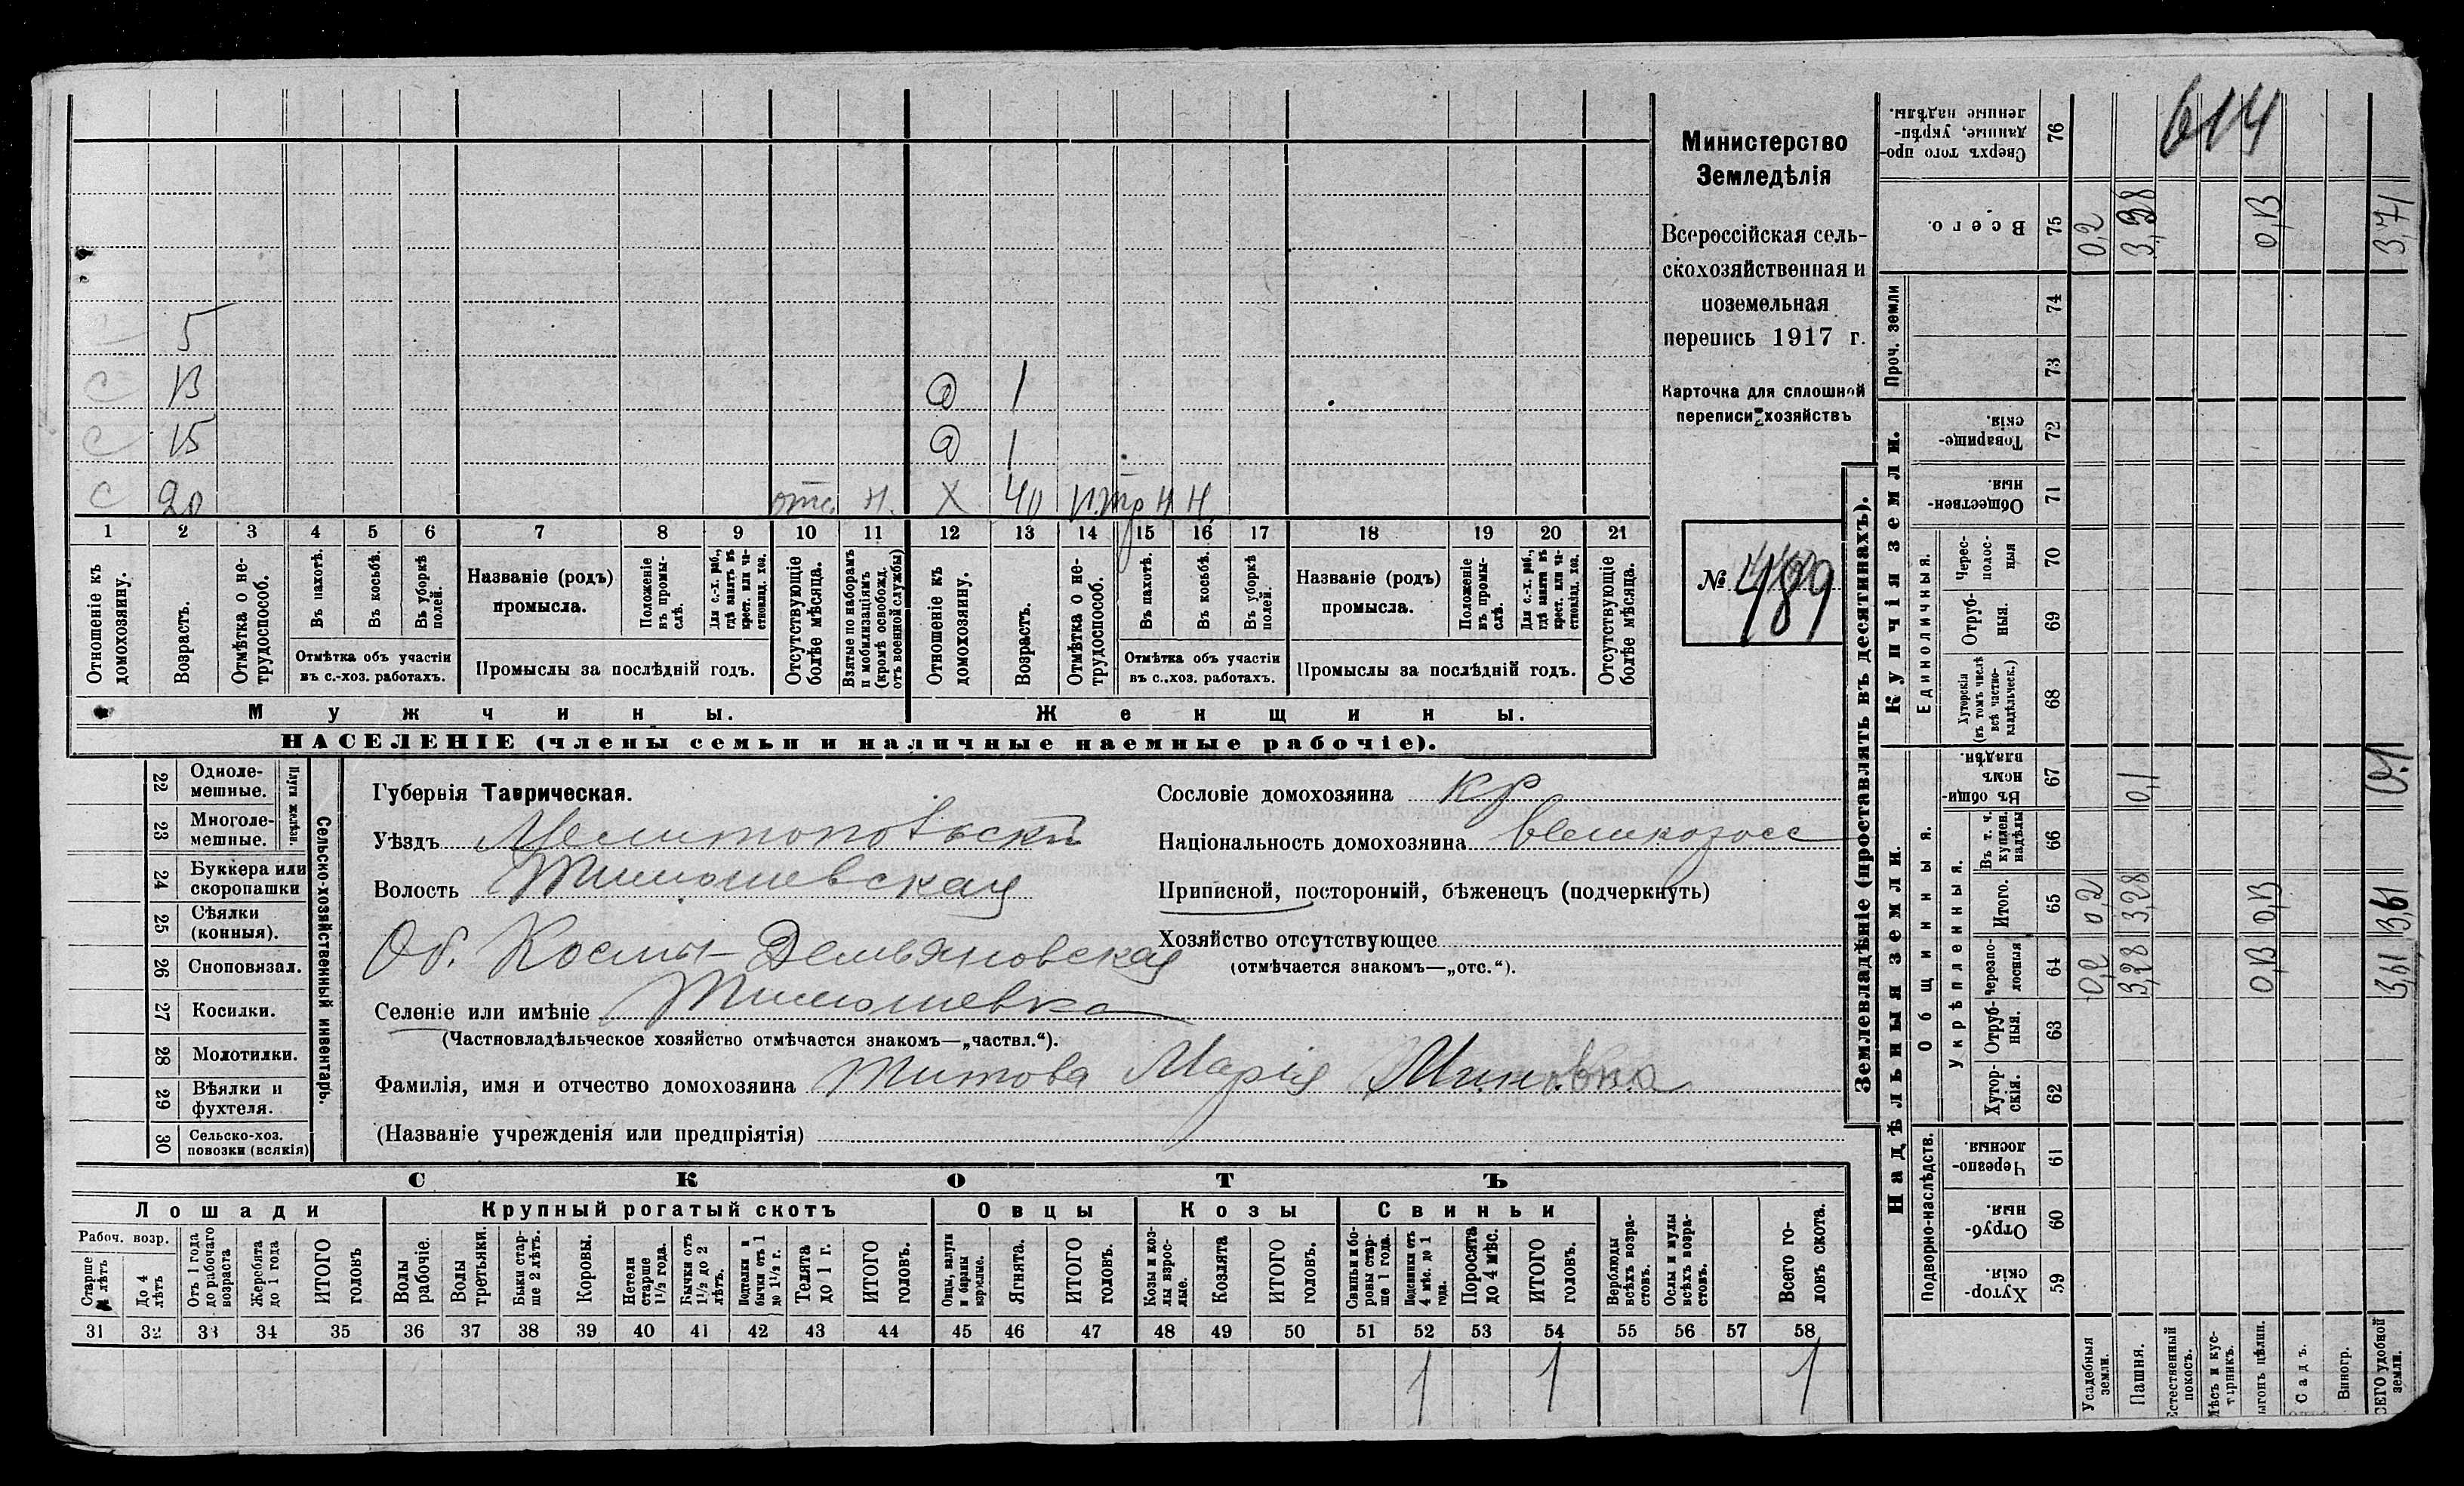 614
Министерство
Земледѣлія
Всероссійская сель-
скохозяйственная и
поземельная
перепись 1917 г.
Карточка для сплошной
переписи хозяйствъ
№ 489
5
с 13 д 1
с 15 д 1
с 20 отс. н. Х 40 н.тр Н Н
1 2 3 4 5 6 7 8 9 10 11 12 13 14 15 16 17 18 19 20 21
Отношеніе къ домохозяину.
Возрастъ.
Отмѣтка о не-трудоспособ.
Въ пахотѣ.
Въ косьбѣ.
Въ уборкѣ полей.
Отмѣтка объ участіи
въ с.-хоз. работахъ.
Названіе (родъ)
промысла.
Положеніе въ промы-слѣ.
Для с.-х. раб., гдѣ занятъ въ крест. или ча-стновлад. хоз.
Промыслы за послѣдній годъ.
Отсутствующіе болѣе мѣсяца.
Взятые по наборамъ и мобилизаціямъ (кромѣ освобожд. отъ военной службы)
Отношеніе къ домохозяину.
Возрастъ.
Отмѣтка о не-трудоспособ.
Въ пахотѣ.
Въ косьбѣ.
Въ уборкѣ полей.
Отмѣтка объ участіи
въ с.-хоз. работахъ.
Названіе (родъ)
промысла.
Положеніе въ промы-слѣ.
Для с.-х. раб., гдѣ занята въ крест. или ча-стновлад. хоз.
Промыслы за послѣдній годъ.
Отсутствующіе болѣе мѣсяца.
Мужчины.
Женщины.
НАСЕЛЕНІЕ (члены семьи и наличные наемные рабочіе).
Сельско-хозяйственный инвентарь.
Плуги желѣзн.
22 Одноле-мешные.
23 Многоле-мешные.
24 Буккера или скоропашки
25 Сѣялки (конныя).
26 Сноповязал.
27 Косилки.
28 Молотилки.
29 Вѣялки и фухтеля.
30 Сельско-хоз. повозки (всякія)
Губернія Таврическая.
Уѣздъ Мелитопольскій
Волость Тимошевская
Об. Космы-Демьяновская
Селеніе или имѣніе Тимошевка
(Частновладѣльческое хозяйство отмѣчается знакомъ—„частвл.“).
Фамилія, имя и отчество домохозяина Титова Марія
(Названіе учрежденія или предпріятія)
Сословіе домохозяина кр
Національность домохозяина великоросс
Приписной, посторонній, бѣженецъ (подчеркнуть)
Хозяйство отсутствующее
(отмѣчается знакомъ—„отс.“).
СКОТЪ
Лошади
Крупный рогатый скотъ
Овцы
Козы
Свиньи
Рабоч. возр.
Старше 4 лѣтъ
До 4 лѣтъ
Отъ 1 года до рабочаго возраста
Жеребята до 1 года
ИТОГО головъ
Волы рабочіе.
Волы третьяки.
Быки стар-ше 2 лѣтъ.
Коровы.
Нетели старше 1½ года.
Бычки отъ 1½ до 2 лѣтъ.
Подтелки и бычки отъ 1 до 1½ г.
Телята до 1 г.
ИТОГО головъ.
Овцы, валухи и бараны взрослые.
Ягнята.
ИТОГО головъ.
Козы и коз-лы взрос-лые.
Козлята
ИТОГО головъ.
Свиньи и бо-ровы стар-ше 1 года.
Подсвинки отъ 4 мѣс. до 1 года.
Поросята до 4 мѣс.
ИТОГО головъ.
Верблюды всѣхъ возра-стовъ.
Ослы и мулы всѣхъ возра-стовъ.
Всего го-ловъ скота.
31 32 33 34 35 36 37 38 39 40 41 42 43 44 45 46 47 48 49 50 51 52 53 54 55 56 57 58
1 1 1
Землевладѣніе (проставлять въ десятинахъ).
Надѣльныя земли.
Купчія земли.
Проч. земли
Подворно-наслѣдств.
Общинныя.
Укрѣпленныя.
Единоличныя.
Сверхъ того про-данные, укрѣп-ленные надѣлы. 76
Всего. 75 0,2 3,38 0,13 3,71
74
73
Товарище-скія. 72
Обществен-ныя. 71
Черес-полос-ныя 70
Отруб-ныя. 69
Хуторскія (въ томъ числѣ всѣ частно-владѣльческ.) 68
Въ общин-номъ владѣн. 67 0,1 0,1
Въ т. ч. куплен. надѣлы 66
Итого. 65 0,2 3,28 0,13 3,61
Черезпо-лосныя 64 0,2 3,28 0,13 3,61
Отруб-ныя. 63
Хутор-скія. 62
Черезпо-лосныя 61
Отруб-ныя. 60
Хутор-скія. 59
Усадебныя земли.
Пашня.
Естественный покосъ.
Лѣсъ и кус-тарникъ.
Выгонъ цѣлин.
Садъ.
Виногр.
ВСЕГО удобной земли.